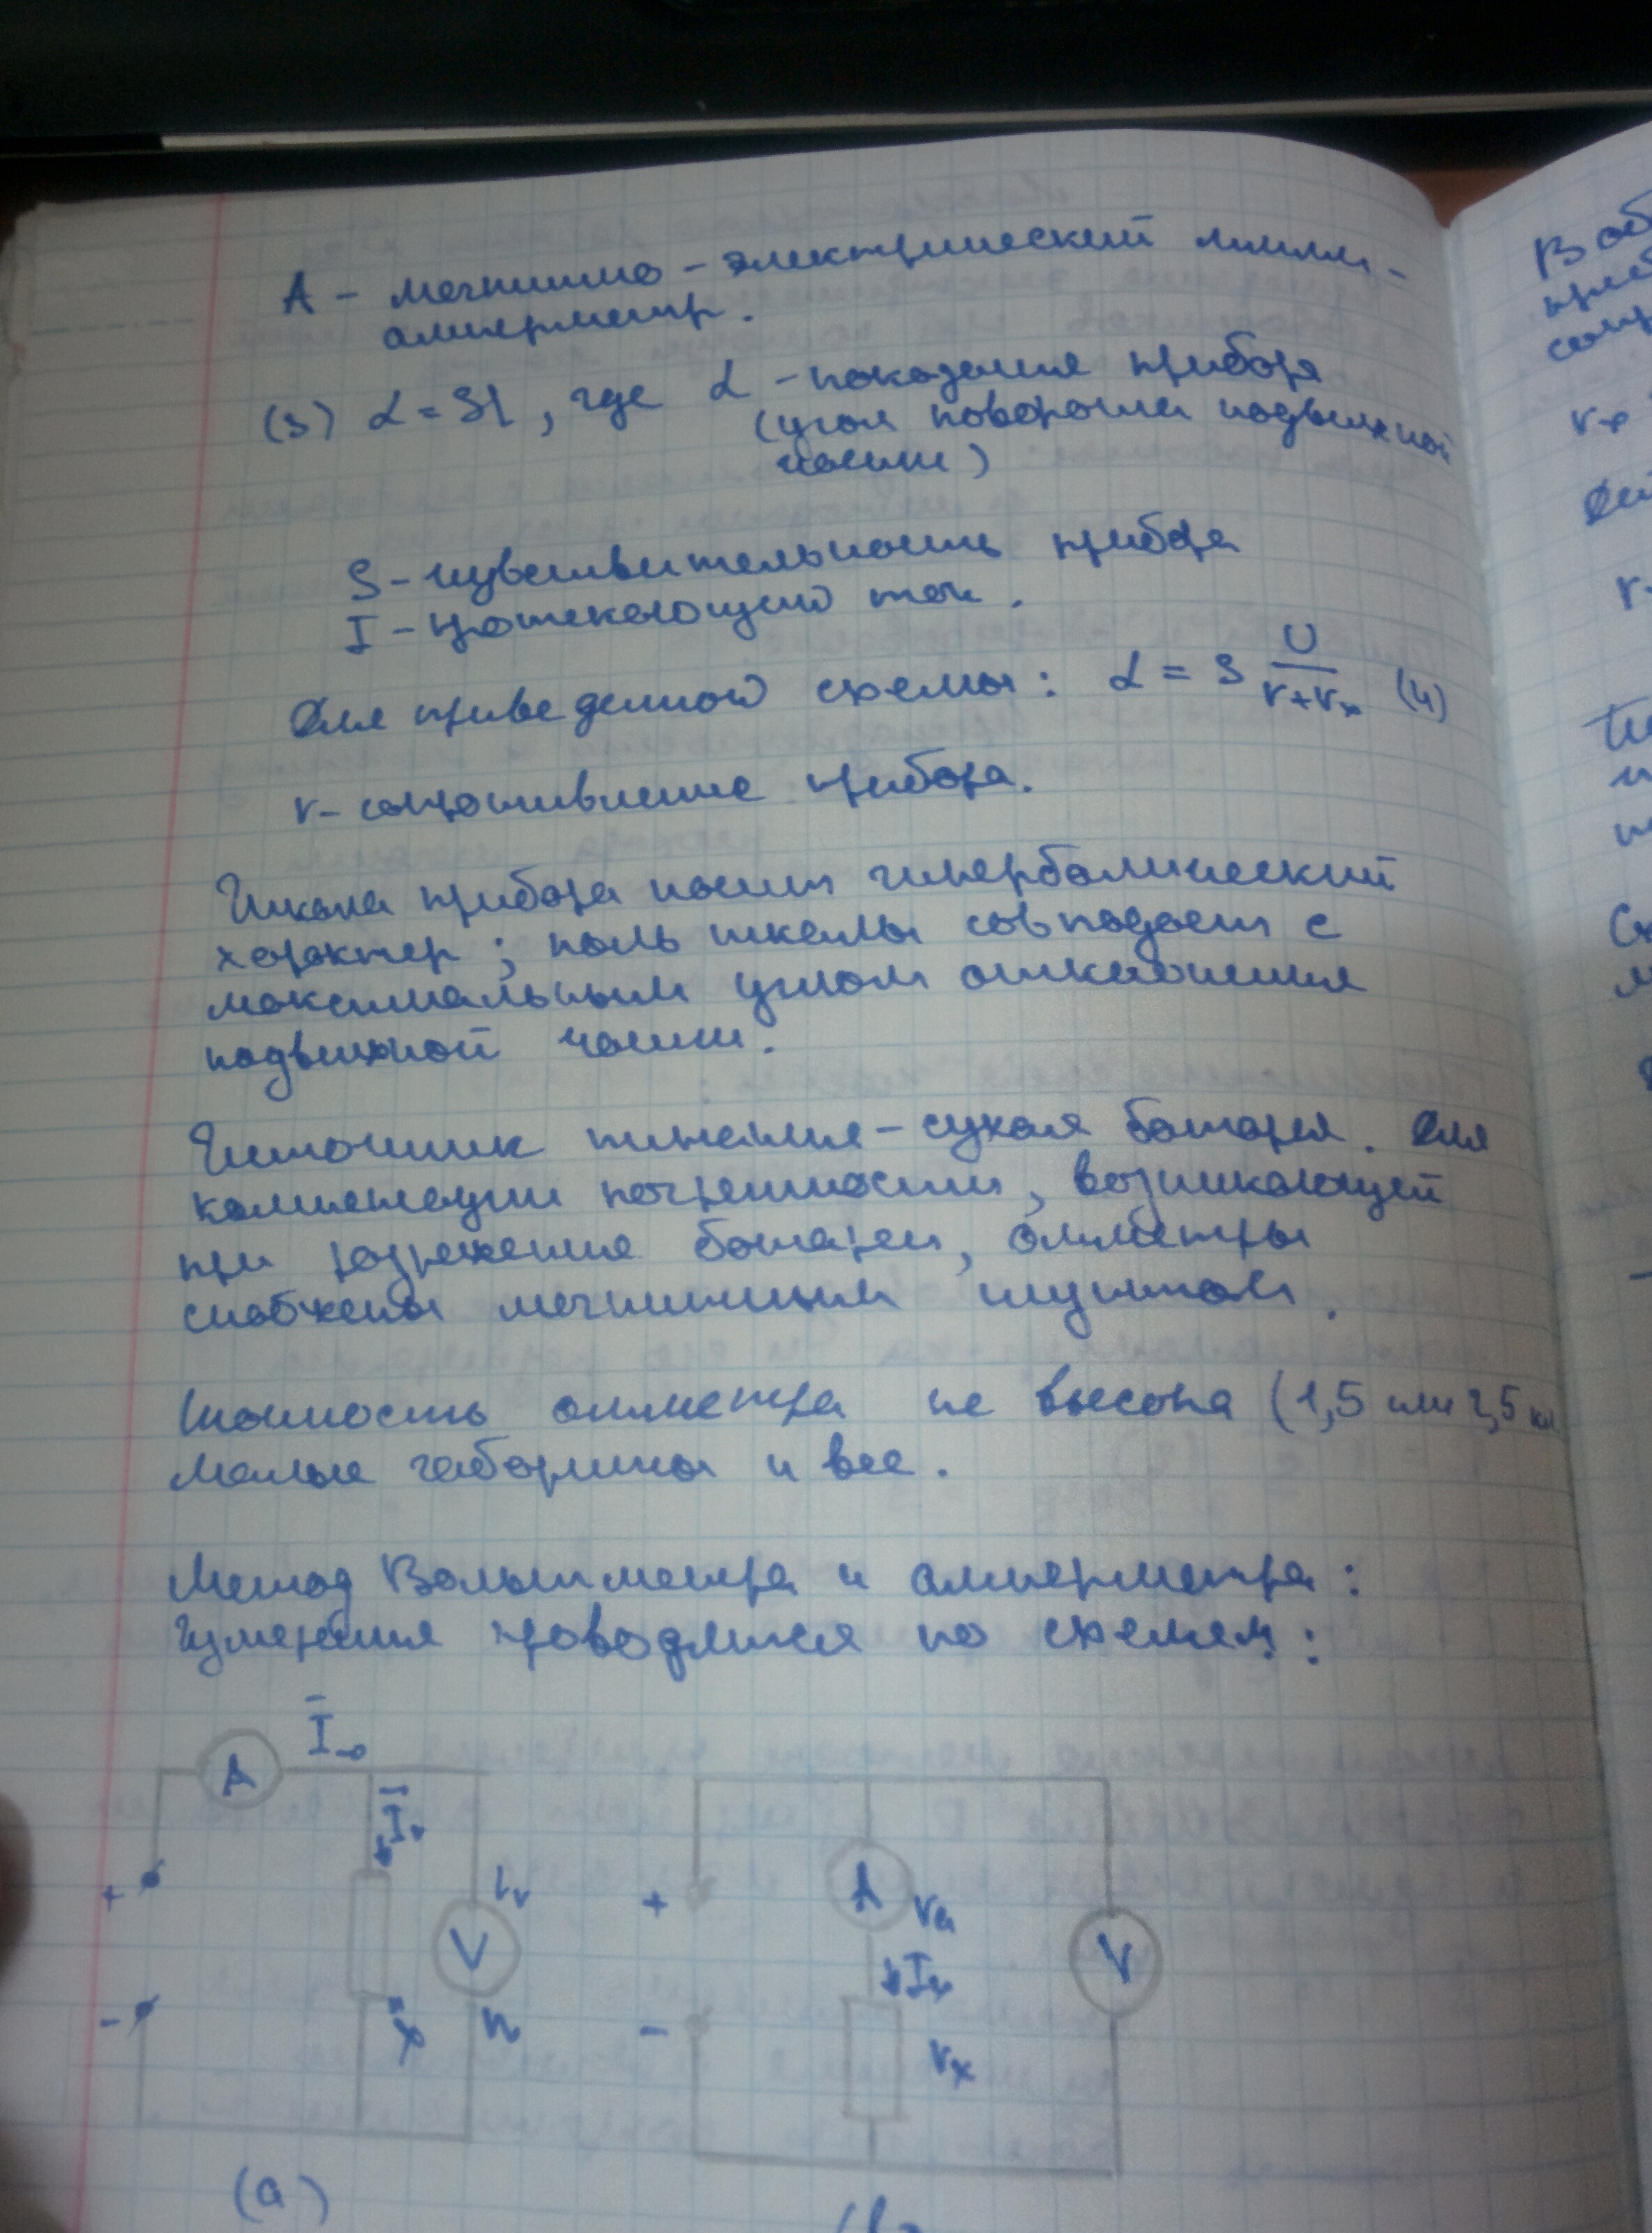 А – магнитно-электрический милли-
амперметр.
(3) α = SI, где α – показания прибора
(угол поворота подвижной
части)
S – чувствительность прибора
I – протекающий ток.
Для приведенной схемы: α = S U/(r+rₓ) (4)
r – сопротивление прибора.
Шкала прибора носит гиперболический
характер; ноль шкалы совпадает с
максимальным углом отклонения
подвижной части.
Источник питания – сухая батарея. Для
компенсации погрешности, возникающей
при разряжение батареи, омметры
снабжены магнитным шунтом.
Точность омметра не высока (1,5 или 2,5 кл
Малые габариты и вес.
Метод Вольтметра и амперметра:
Измерения проводятся по схемам:
A I
I
+ V
- x
(а)
+ A rа V
Iₓ
- rₓ
В об